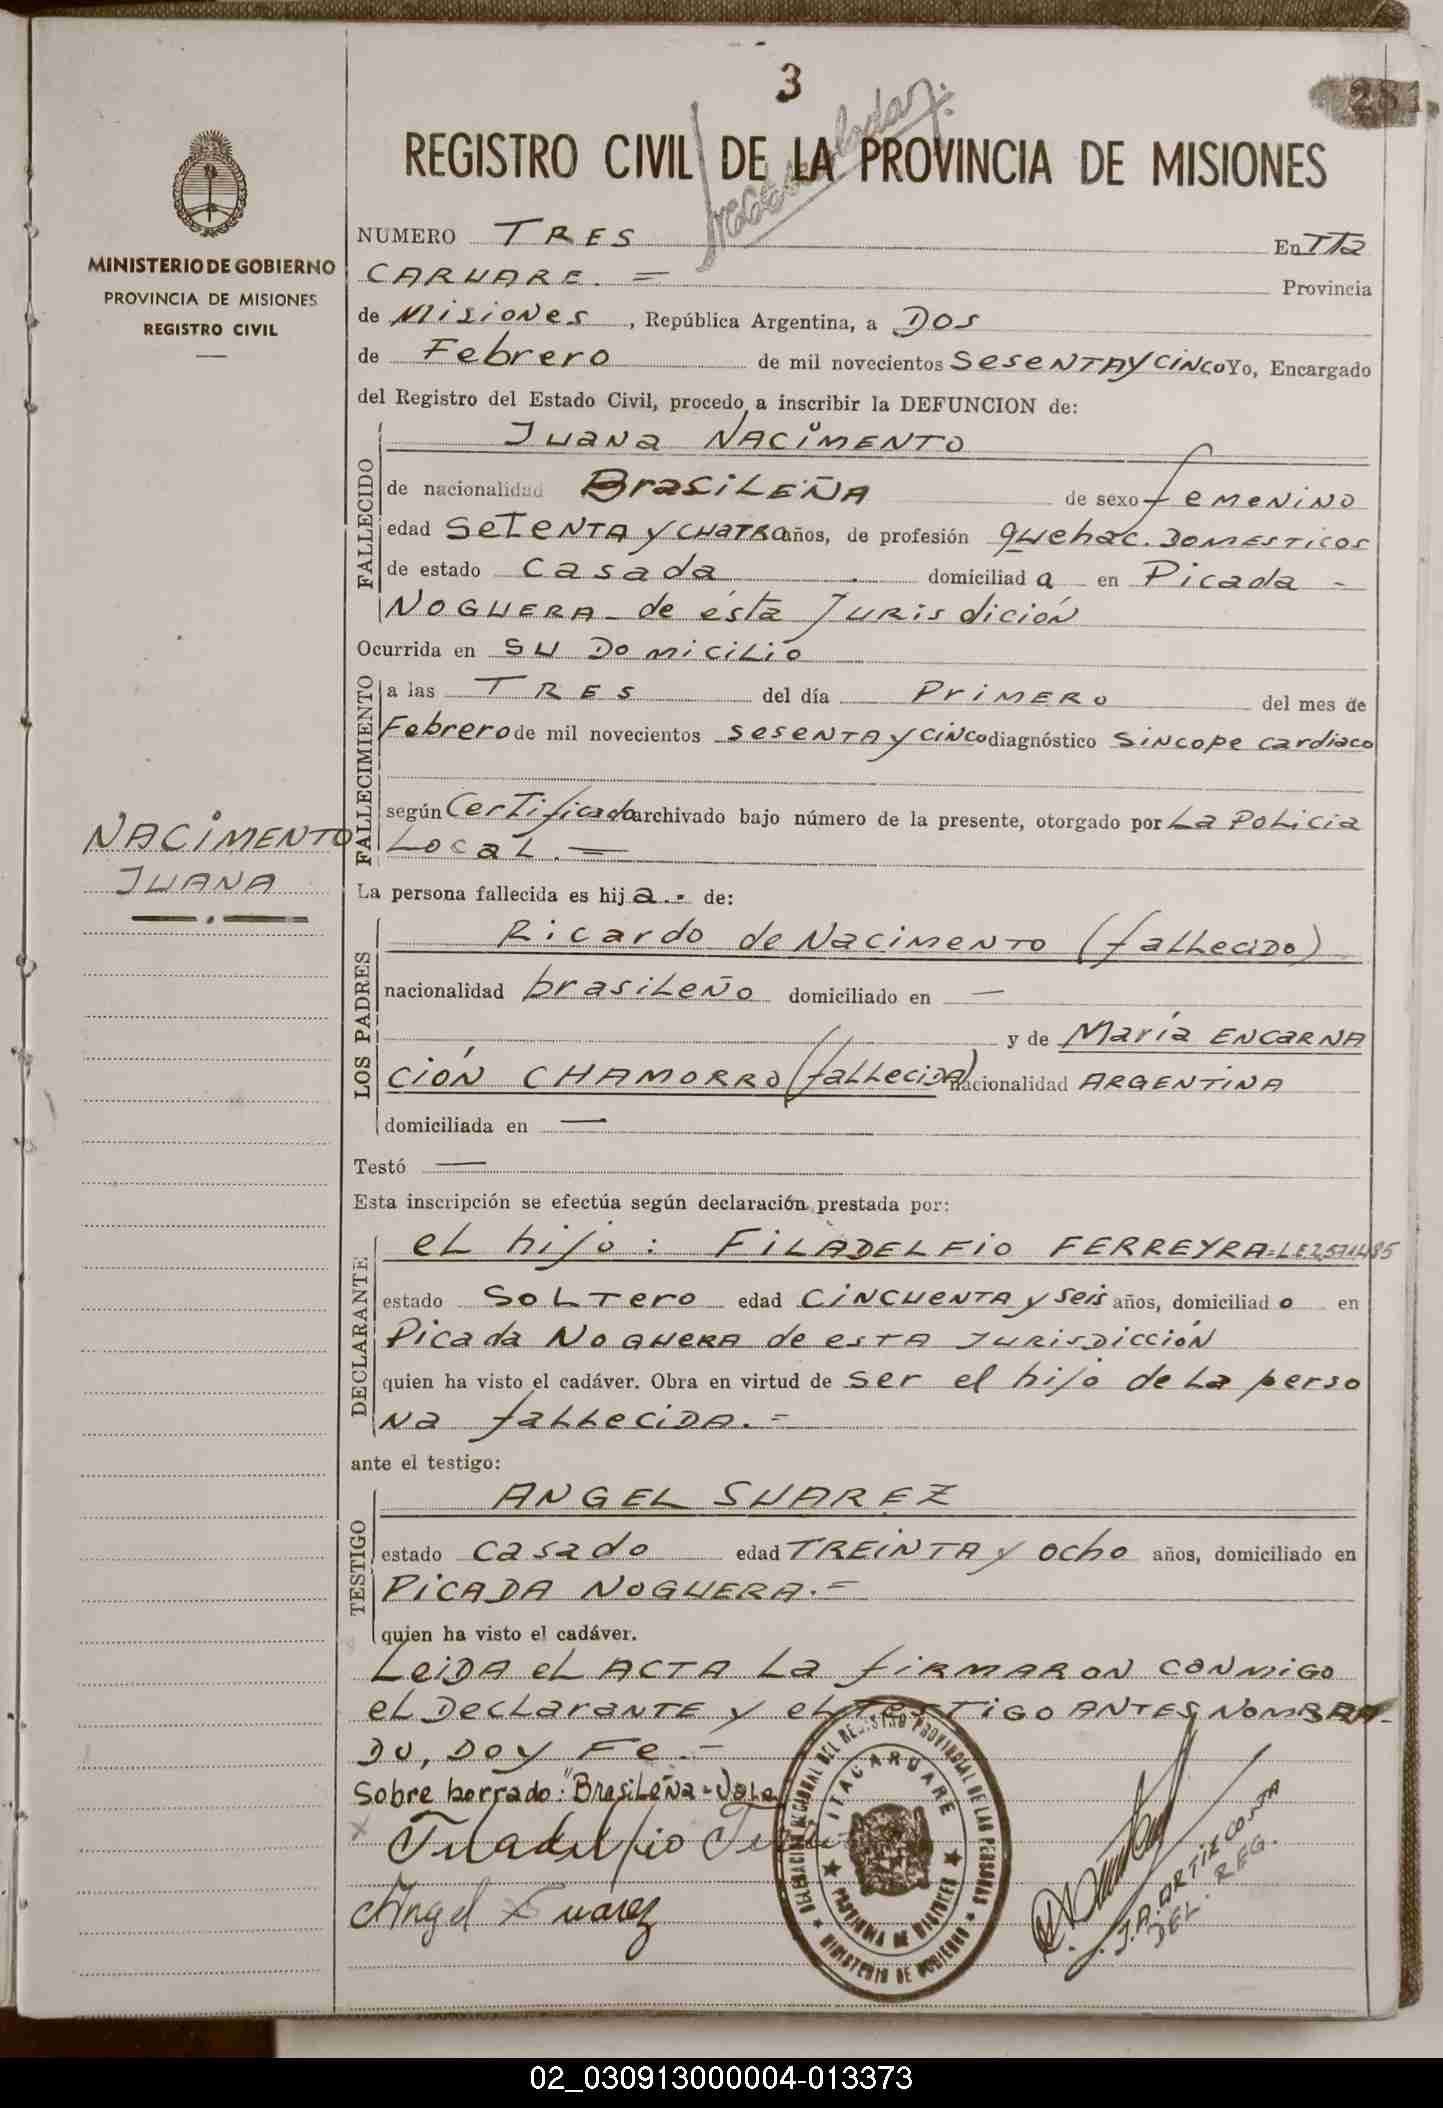 3
281
REGISTRO CIVIL DE LA PROVINCIA DE MISIONES
MINISTERIO DE GOBIERNO
PROVINCIA DE MISIONES
REGISTRO CIVIL
NUMERO TRES En ITA
CARUARE. = Provincia
de Misiones, República Argentina, a DOS
de Febrero de mil novecientos SESENTA Y CINCO Yo, Encargado
del Registro del Estado Civil, procedo a inscribir la DEFUNCION de:
FALLECIDO
JUANA NACIMENTO
de nacionalidad BrasiLEÑA de sexo femenino
edad SETENTA y CUATRO años, de profesión quehac. DOMESTICOS
de estado casada domiciliad a en Picada -
NOGUERA - de ésta Jurisdición
Ocurrida en SU DOMICILIO
FALLECIMIENTO
a las TRES del día PRIMERO del mes de
Febrero de mil novecientos SESENTA y CINCO diagnóstico SINCOPE cardiaco
según Certificado archivado bajo número de la presente, otorgado por LA POLICIA
LOCAL. =
NACIMENTO
JUANA
La persona fallecida es hij a.- de:
LOS PADRES
Ricardo de Nacimento (fallecido)
nacionalidad brasileño domiciliado en —
y de María ENCARNA
CIÓN CHAMORRO (fallecida) nacionalidad ARGENTINA
domiciliada en —
Testó —
Esta inscripción se efectúa según declaración prestada por:
DECLARANTE
el hijo: FILADELFIO FERREYRA=L.E.
estado SOLTERO edad CINCUENTA y seis años, domiciliad o en
Picada NOGUERA de esta JURISDICCIÓN
quien ha visto el cadáver. Obra en virtud de ser el hijo de la perso
na fallecida.=
ante el testigo:
TESTIGO
ANGEL SUAREZ
estado casado edad TREINTA y ocho años, domiciliado en
PICADA NOGUERA.=
quien ha visto el cadáver.
Leida el ACTA la firmaron conmigo
el Declarante y el TESTIGO ANTES NOMBRA-
DO, DOY Fe.-
Sobre borrado: "Brasileña-Vale
Filadelfio
Angel Suarez
DELEGACION SECCIONAL DEL REGISTRO PROVINCIAL DE LAS PERSONAS
ITACARUARE
PROVINCIA DE MISIONES
MINISTERIO DE GOBIERNO
J.A. ORTIZ COSTA
DEL. REG.
02_030913000004-013373